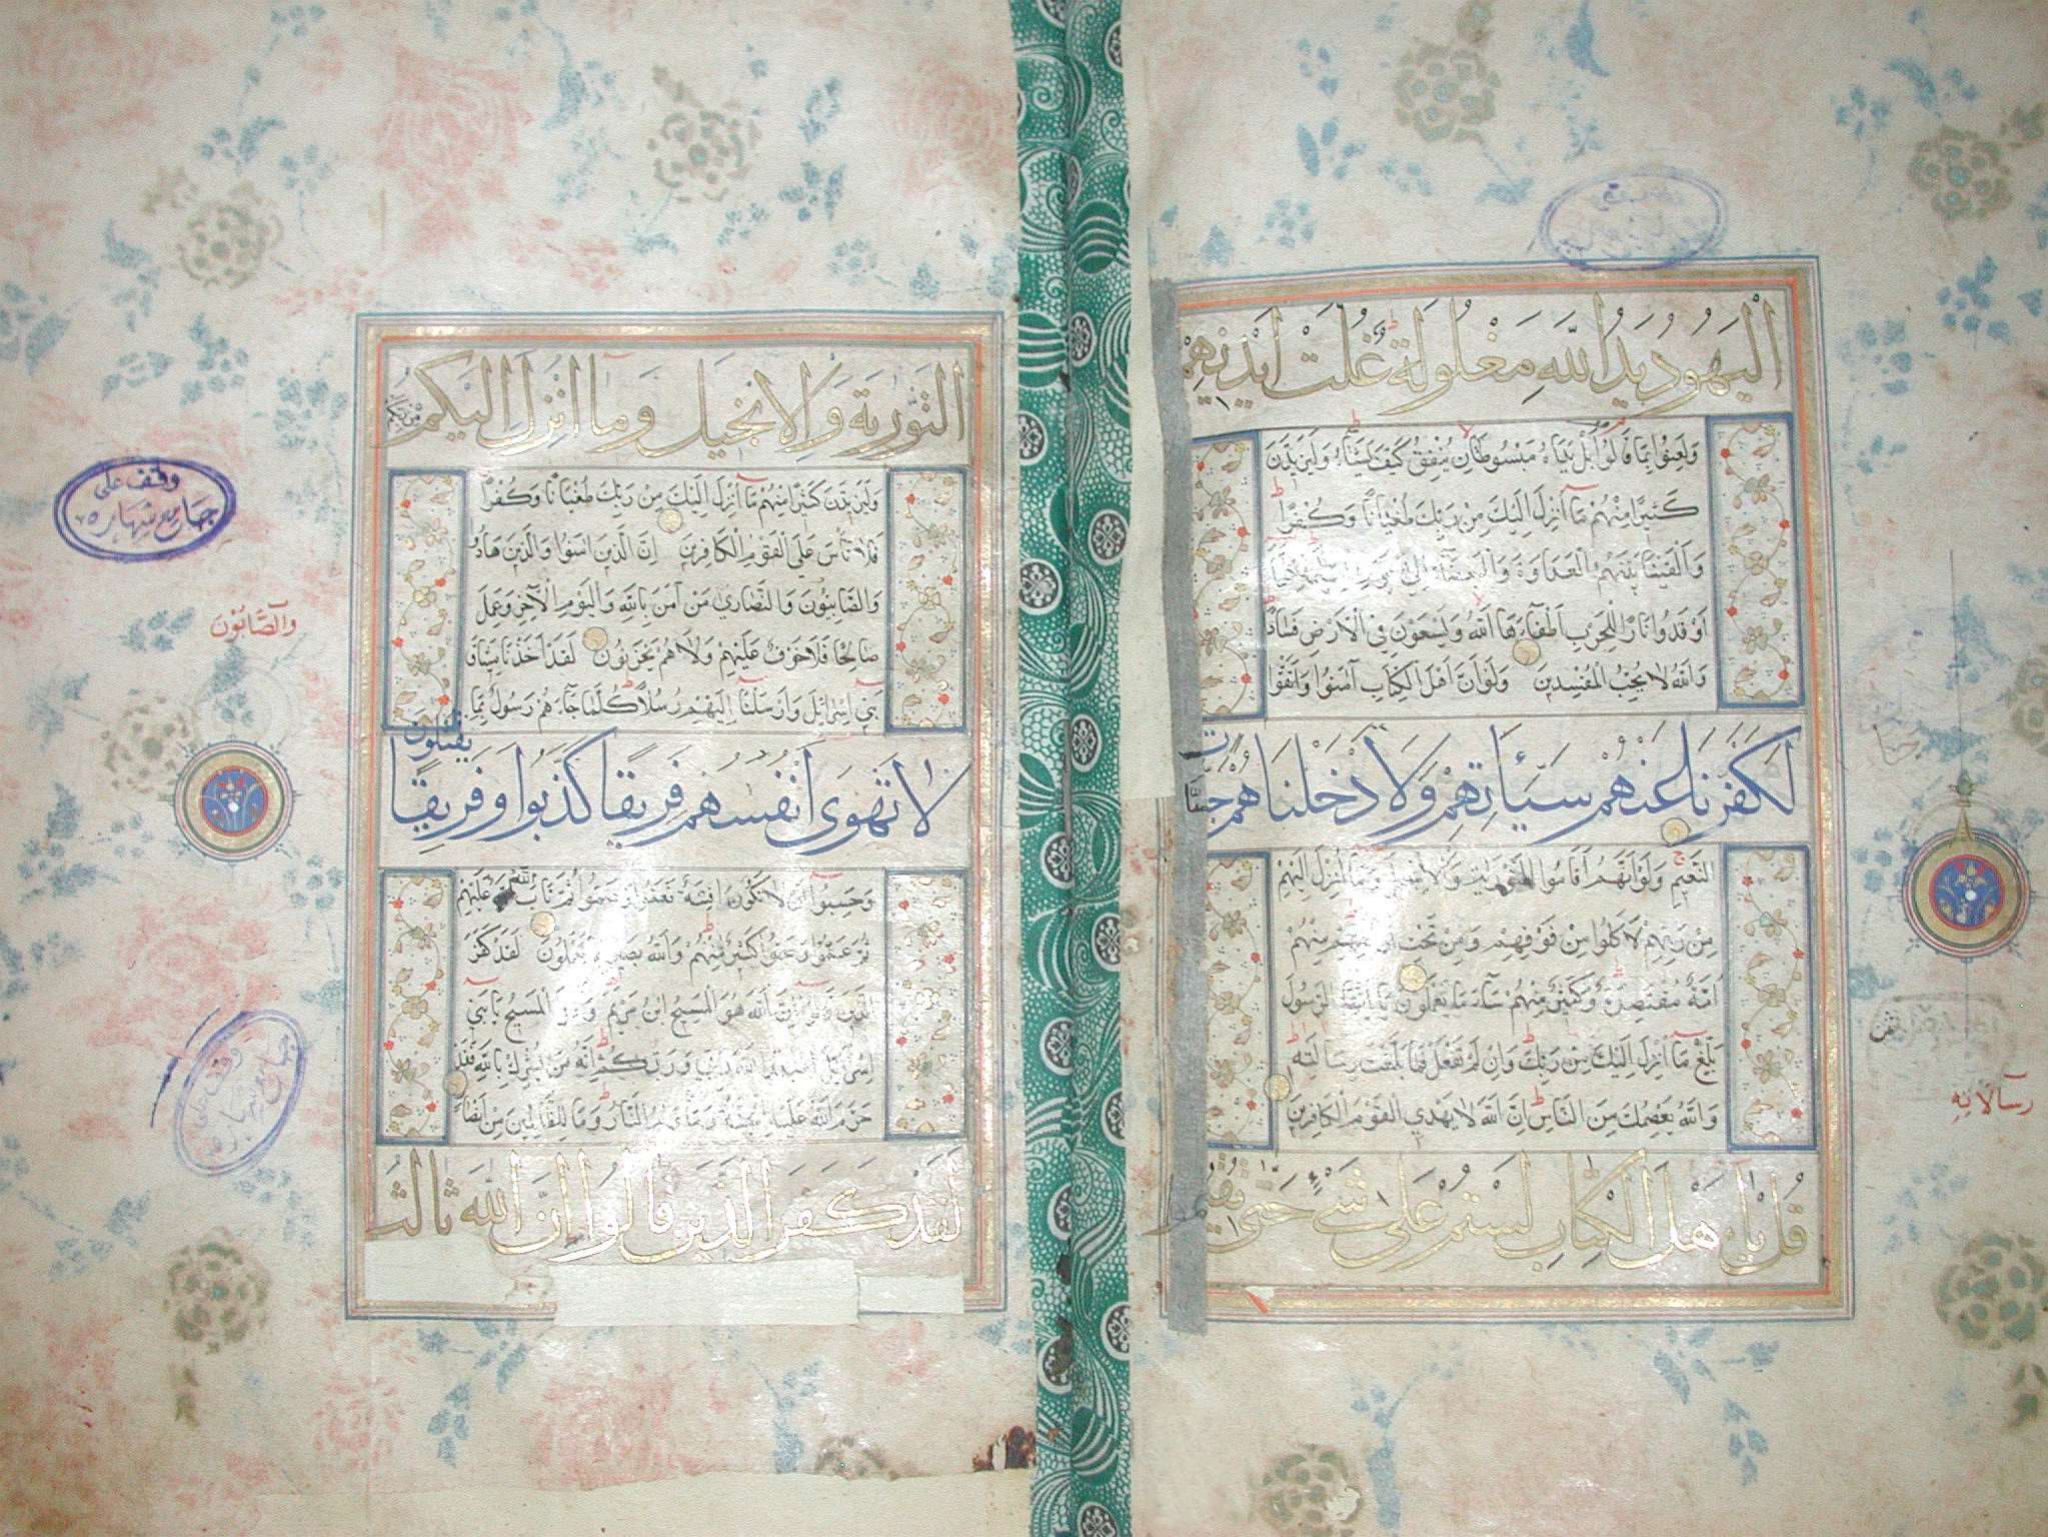 اليهود يد الله مغلولة غلت ايديهم
ولعنوا بما قالوا بل يداه مبسوطتان ينفق كيف يشاء وليزيدن
كثيرا منهم ما انزل اليك من ربك طغيانا وكفرا
والقينا بينهم العداوة والبغضاء الى يوم القيمة كلما
اوقدوا نارا للحرب اطفاءها الله ويسعون في الارض فسادا
والله لا يحب المفسدين ولو ان اهل الكتاب آمنوا واتقوا
لكفرنا عنهم سيئاتهم ولادخلناهم جنات
النعيم ولو انهم اقاموا التورية والانجيل وما انزل اليهم
من ربهم لاكلوا من فوقهم ومن تحت ارجلهم منهم
امة مقتصدة وكثير منهم ساء ما يعملون يا ايها الرسول
بلغ ما انزل اليك من ربك وان لم تفعل فما بلغت رسالته
والله يعصمك من الناس ان الله لا يهدي القوم الكافرين
قل يا اهل الكتاب لستم على شيء حتى تقيموا
رسالاته
التورية والانجيل وما انزل اليكم من ربكم
وليزيدن كثيرا منهم ما انزل اليك من ربك طغيانا وكفرا
فلا تأس على القوم الكافرين ان الذين امنوا والذين هادوا
والصابئون والنصارى من آمن بالله واليوم الآخر وعمل
صالحا فلا خوف عليهم ولا هم يحزنون لقد اخذنا ميثاق
بني اسرائيل وارسلنا اليهم رسلا كلما جاءهم رسول بما
لا تهوى انفسهم فريقا كذبوا وفريقا يقتلون
وحسبوا ان لا تكون فتنة فعموا وصموا ثم تاب الله عليهم
ثم عموا وصموا كثير منهم والله بصير بما يعملون لقد كفر
الذين قالوا ان الله هو المسيح ابن مريم وقال المسيح يا بني
اسرائيل اعبدوا الله ربي وربكم انه من يشرك بالله فقد
حرم الله عليه الجنة ومأواه النار وما للظالمين من انصار
لقد كفر الذين قالوا ان الله ثالث
وقف على
جامع شهاره
والصابئون
وقف على
جامع شهاره